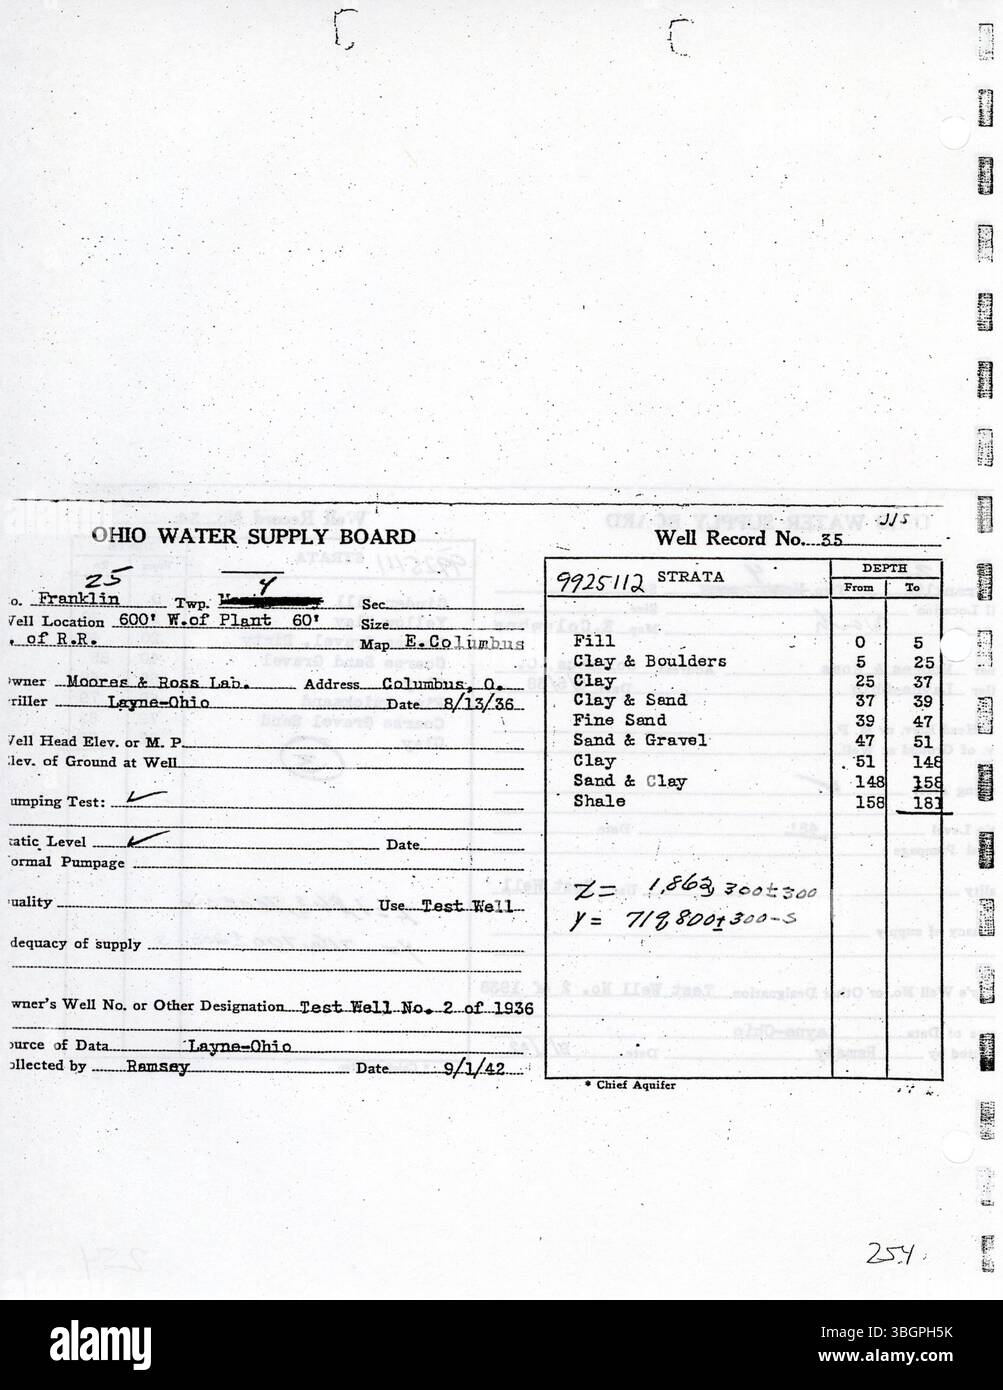 OHIO WATER SUPPLY BOARD
25 4
o. Franklin Twp. Sec.
ell Location 600' W.of Plant 60' Size
. of R.R. Map E.Columbus
wner Moores & Ross Lab. Address Columbus, O.
riller Layne-Ohio Date 8/13/36
ell Head Elev. or M. P.
lev. of Ground at Well
umping Test:
tatic Level Date
ormal Pumpage
uality Use Test Well
dequacy of supply
wner's Well No. or Other Designation Test Well No. 2 of 1936
ource of Data Layne-Ohio
ollected by Ramsey Date 9/1/42
JJS
Well Record No. 35
9925112 STRATA DEPTH
From To
Fill 0 5
Clay & Boulders 5 25
Clay 25 37
Clay & Sand 37 39
Fine Sand 39 47
Sand & Gravel 47 51
Clay 51 148
Sand & Clay 148 158
Shale 158 181
X = 1,863,300±300
Y = 719,800±300-S
* Chief Aquifer
254
alamy
Image ID: 3BGPH5K
www.alamy.com